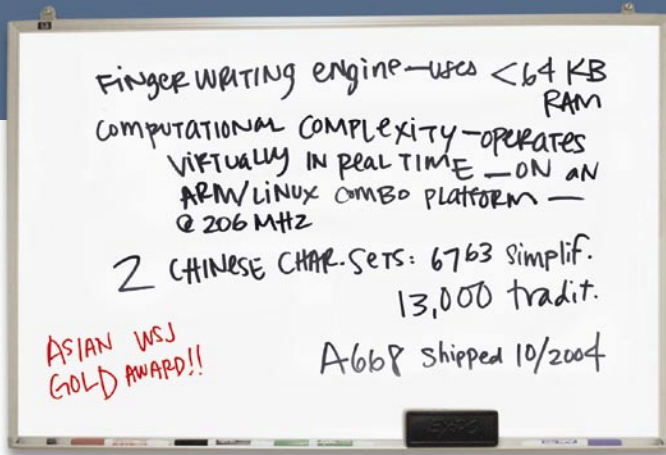 FINGER WRITING engine—uses <64 KB
RAM
COMPUTATIONAL COMPLEXITY—OPERATES
VIRTUALLY IN REAL TIME — ON AN
ARM/LINUX COMBO PLATFORM —
@ 206 MHZ
2 CHINESE CHAR. SETS: 6763 Simplif.
13,000 tradit.
ASIAN WSJ
GOLD AWARD!!
A668 Shipped 10/2004
EXPO